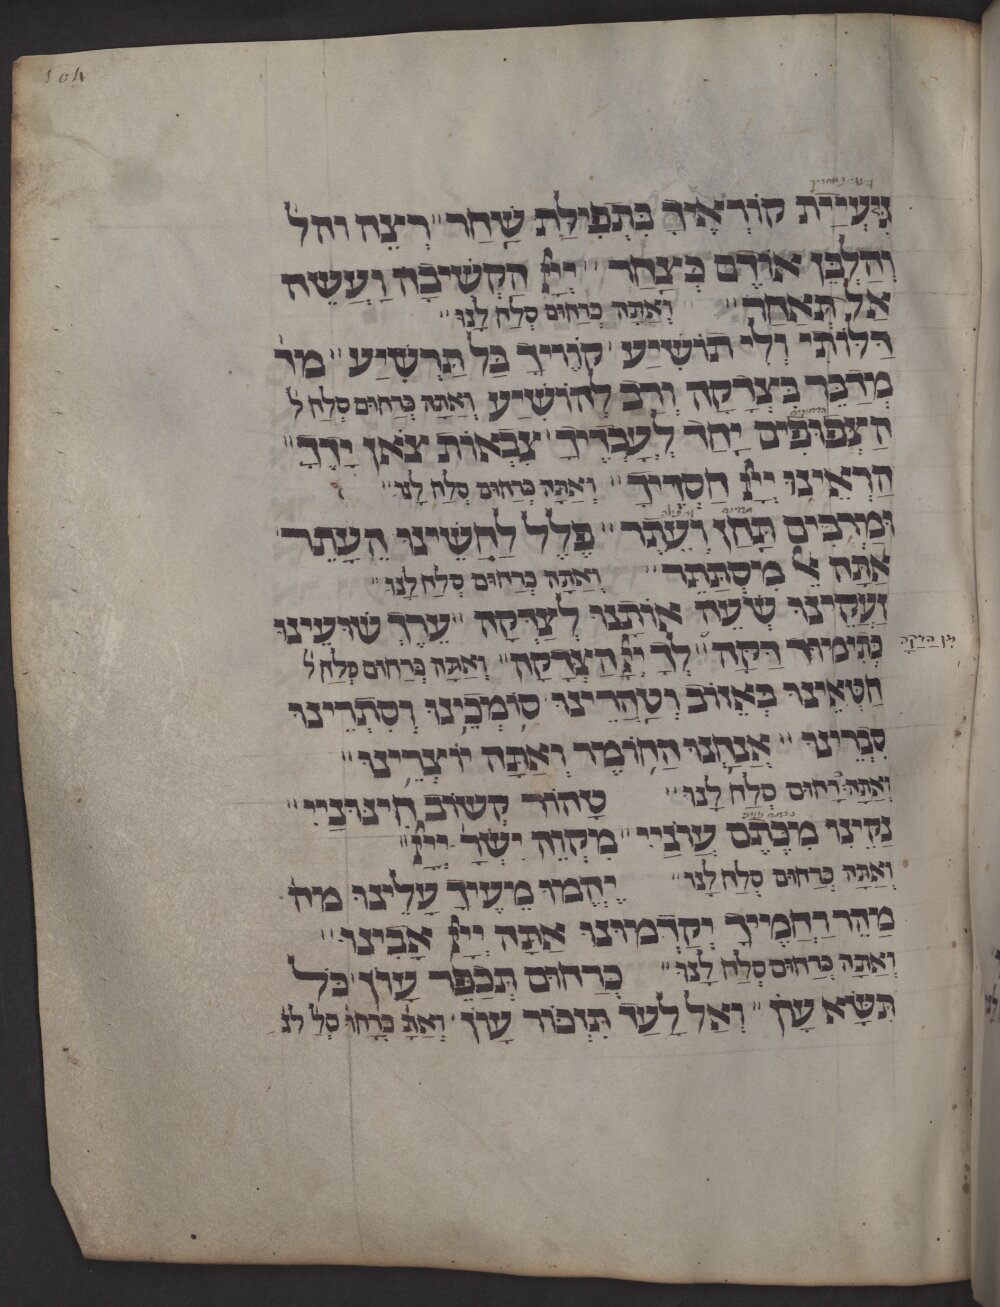 104
נְעִיַית קוֹרְאֶיךָ בִּתְפִילַת שַׁחַר״ רְיצֵה וחל
וְהַלְבֵּן אוֹדֶם כְּצָחַר״ יְיָ הַקְשִׁיבָה וַעֲשֵׂה
אַל תְּאַחַר״ וְאַתָּה כְּרַחוּם סְלַח לָנוּ״
דַלּוֹתִי וְלִי תוֹשִׁיעַ קוֹוֶיךָ בַּל תַּרְשִׁיעַ״ מד
מְדַבֵּר בִּצְדָקָה וְרַב לְהוֹשִׁיעַ וְאַתָּה כְּרַחוּם סְלַח ל
הַצְפוּפִים יָחַד לְעָבְדֶיךָ צִבְאוֹת צֹאן יָדֶךָ״
הַרְאֵינוּ יְיָ חַסְדֶיךָ״ וְאַתָּה כְּרַחוּם סְלַח לָנוּ״
וּמַרְבִּים תַּחַן וְעֶתֶר״ פֶּלֶל לַחֲשֵׁינוּ הֵעָתֵר
אַתָּה אֵל מִסְתַּתֵּר״ וְאַתָּה כְּרַחוּם סְלַח לָנוּ״
זַעֲקֵינוּ שְׁעֵה אוֹתָנוּ לְצַדְּקָה״ עֶרֶךְ שׁוּעֵינוּ
כְּתִימוּר דַּקָּה״ לְךָ יְיָ הַצְּדָקָה״ וְאַתָּה כְּרַחוּם סְלַח ל
מן הדקה
חַטְּאֵינוּ בְּאֵזוֹב וְטַהֲרֵינוּ סוֹמְכֵינוּ וְסִתְרֵינוּ
סִבְרֵינוּ״ אֲנַחְנוּ הַחוֹמֶר וְאַתָּה יוֹצְרֵינוּ״
וְאַתָּה כְּרַחוּם סְלַח לָנוּ״ טָהוֹר קְשׁוֹב חִינוּנַיי״
נַקֵינוּ מִכֶּתֶם עֲוֹנַיי״ מִקְוֵה יִשְׂרָ יְיָ״
וְאַתָּה כְּרַחוּם סְלַח לָנוּ״ יֶהֱמוּ מֵעֶיךָ עָלֵינוּ מה
מַהֵר רַחֲמֶיךָ יְקַדְּמוּנוּ אַתָּה יְיָ אָבִינוּ״
וְאַתָּה כְּרַחוּם סְלַח לָנוּ״ כְּרַחוּם תְּכַפֵּר עָוֹן כָּל
תִּשָּׂא עָוֹן״ וְאַל לָעַד תִּזְכּוֹר עָוֹן וְאַתָּ כְּרַחוּ סְלַ לנ